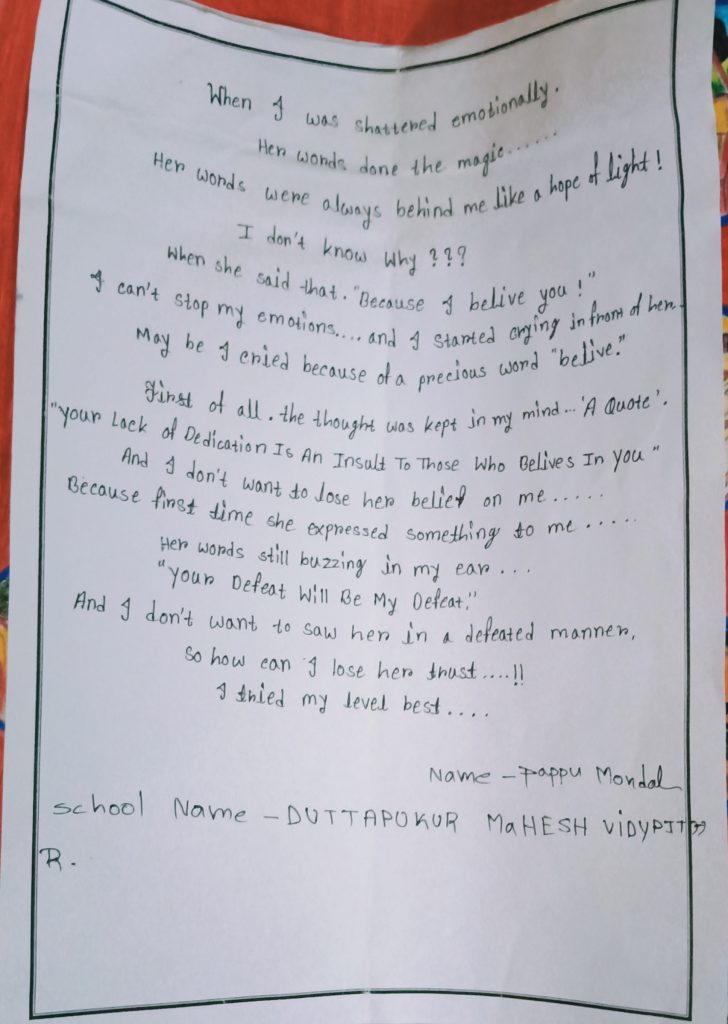 When I was shattered emotionally.
Her words done the magic......
Her words were always behind me like a hope of light!
I don't know Why ???
When she said that. "Because I belive you!"
I can't stop my emotions.... and I started crying in front of her.
May be I cried because of a precious word "belive."
First of all. the thought was kept in my mind... 'A Quote'.
"Your Lack of Dedication Is An Insult To Those Who Belives In You"
And I don't want to lose her belief on me .....
Because first time she expressed something to me ......
Her words still buzzing in my ear...
"Your Defeat Will Be My Defeat."
And I don't want to saw her in a defeated manner,
So how can I lose her trust....!!
I tried my level best....
Name - Pappu Mondal
School Name - DUTTAPUKUR MaHESH ViDYPIT
R.